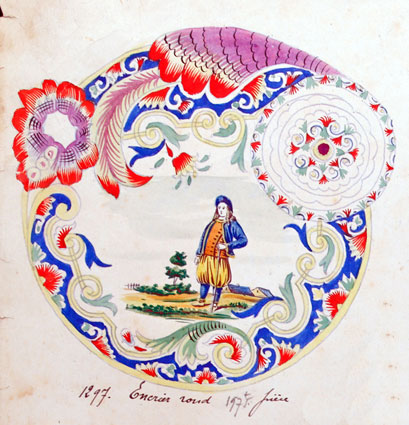 1297. Encrier rond 197